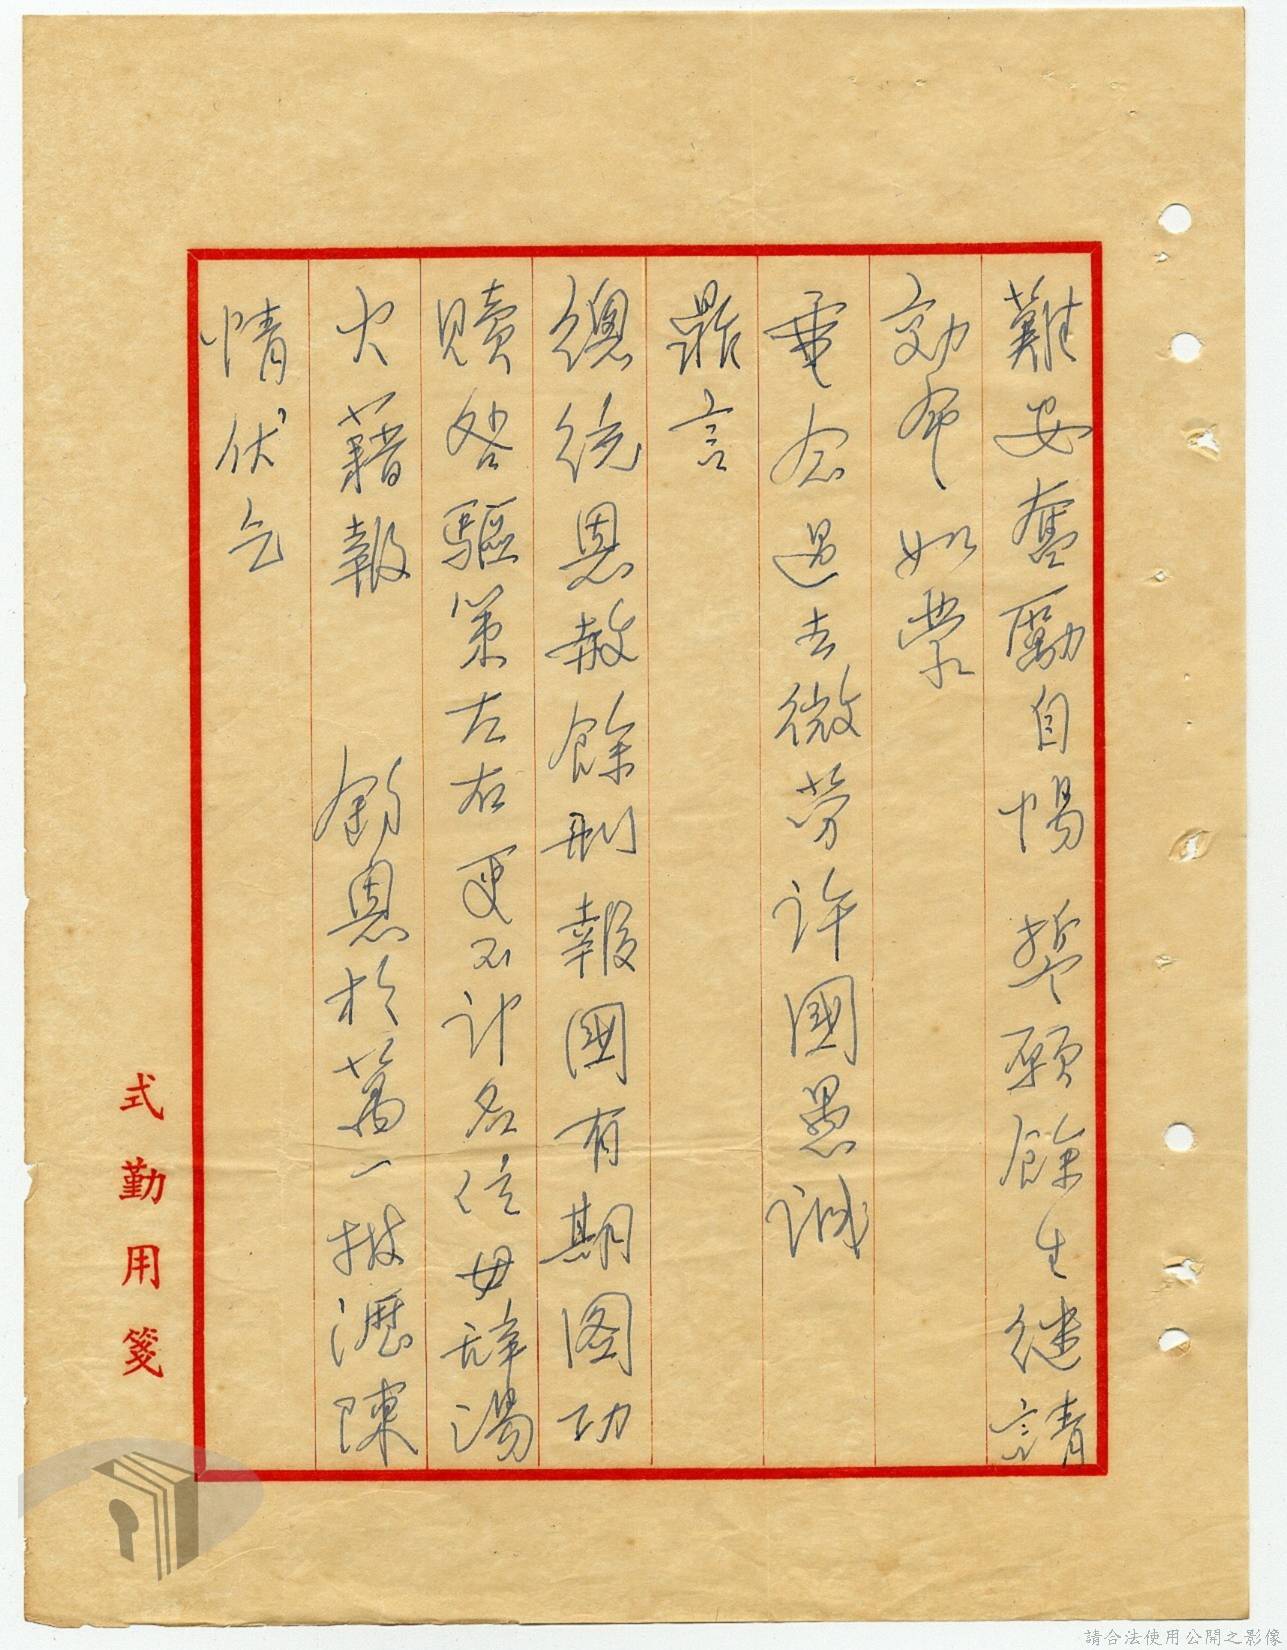 難安奮勵自惕 誓願餘生继請
効命 如蒙
垂念過去微勞許國愚誠
鼎言
總統恩赦餘刑報國有期图功
贖咎驅策左右更不計名位毋辭湯
火藉報 鈞恩於萬一披瀝陳
情伏乞
式勤用箋
請合法使用公開之影像